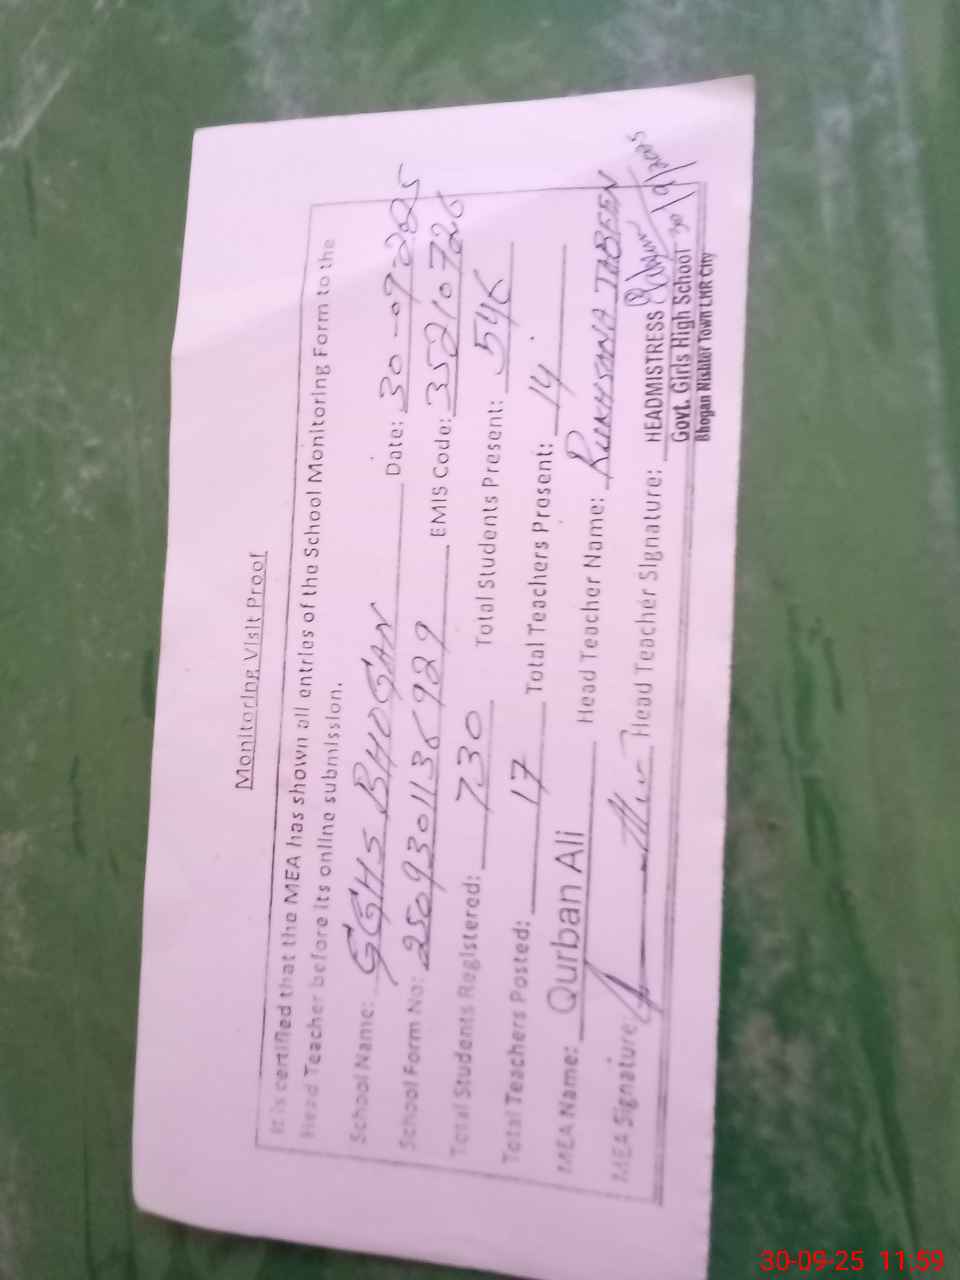 Monitoring Visit Proof
It is certified that the MEA has shown all entries of the School Monitoring Form to the
Head Teacher before its online submission.
School Name: GGHS BHOGAN Date: 30-09-2025
School Form No: 2509301136929 EMIS Code: 35210726
Total Students Registered: 730 Total Students Present: 546
Total Teachers Posted: 17 Total Teachers Present: 14
MEA Name: Qurban Ali Head Teacher Name: RUKHSANA JABEEN
MEA Signature: Head Teacher Signature:
HEADMISTRESS
Govt. Girls High School 30/9/2025
Bhogan Nishter Town LHR City
30-09-25 11:59